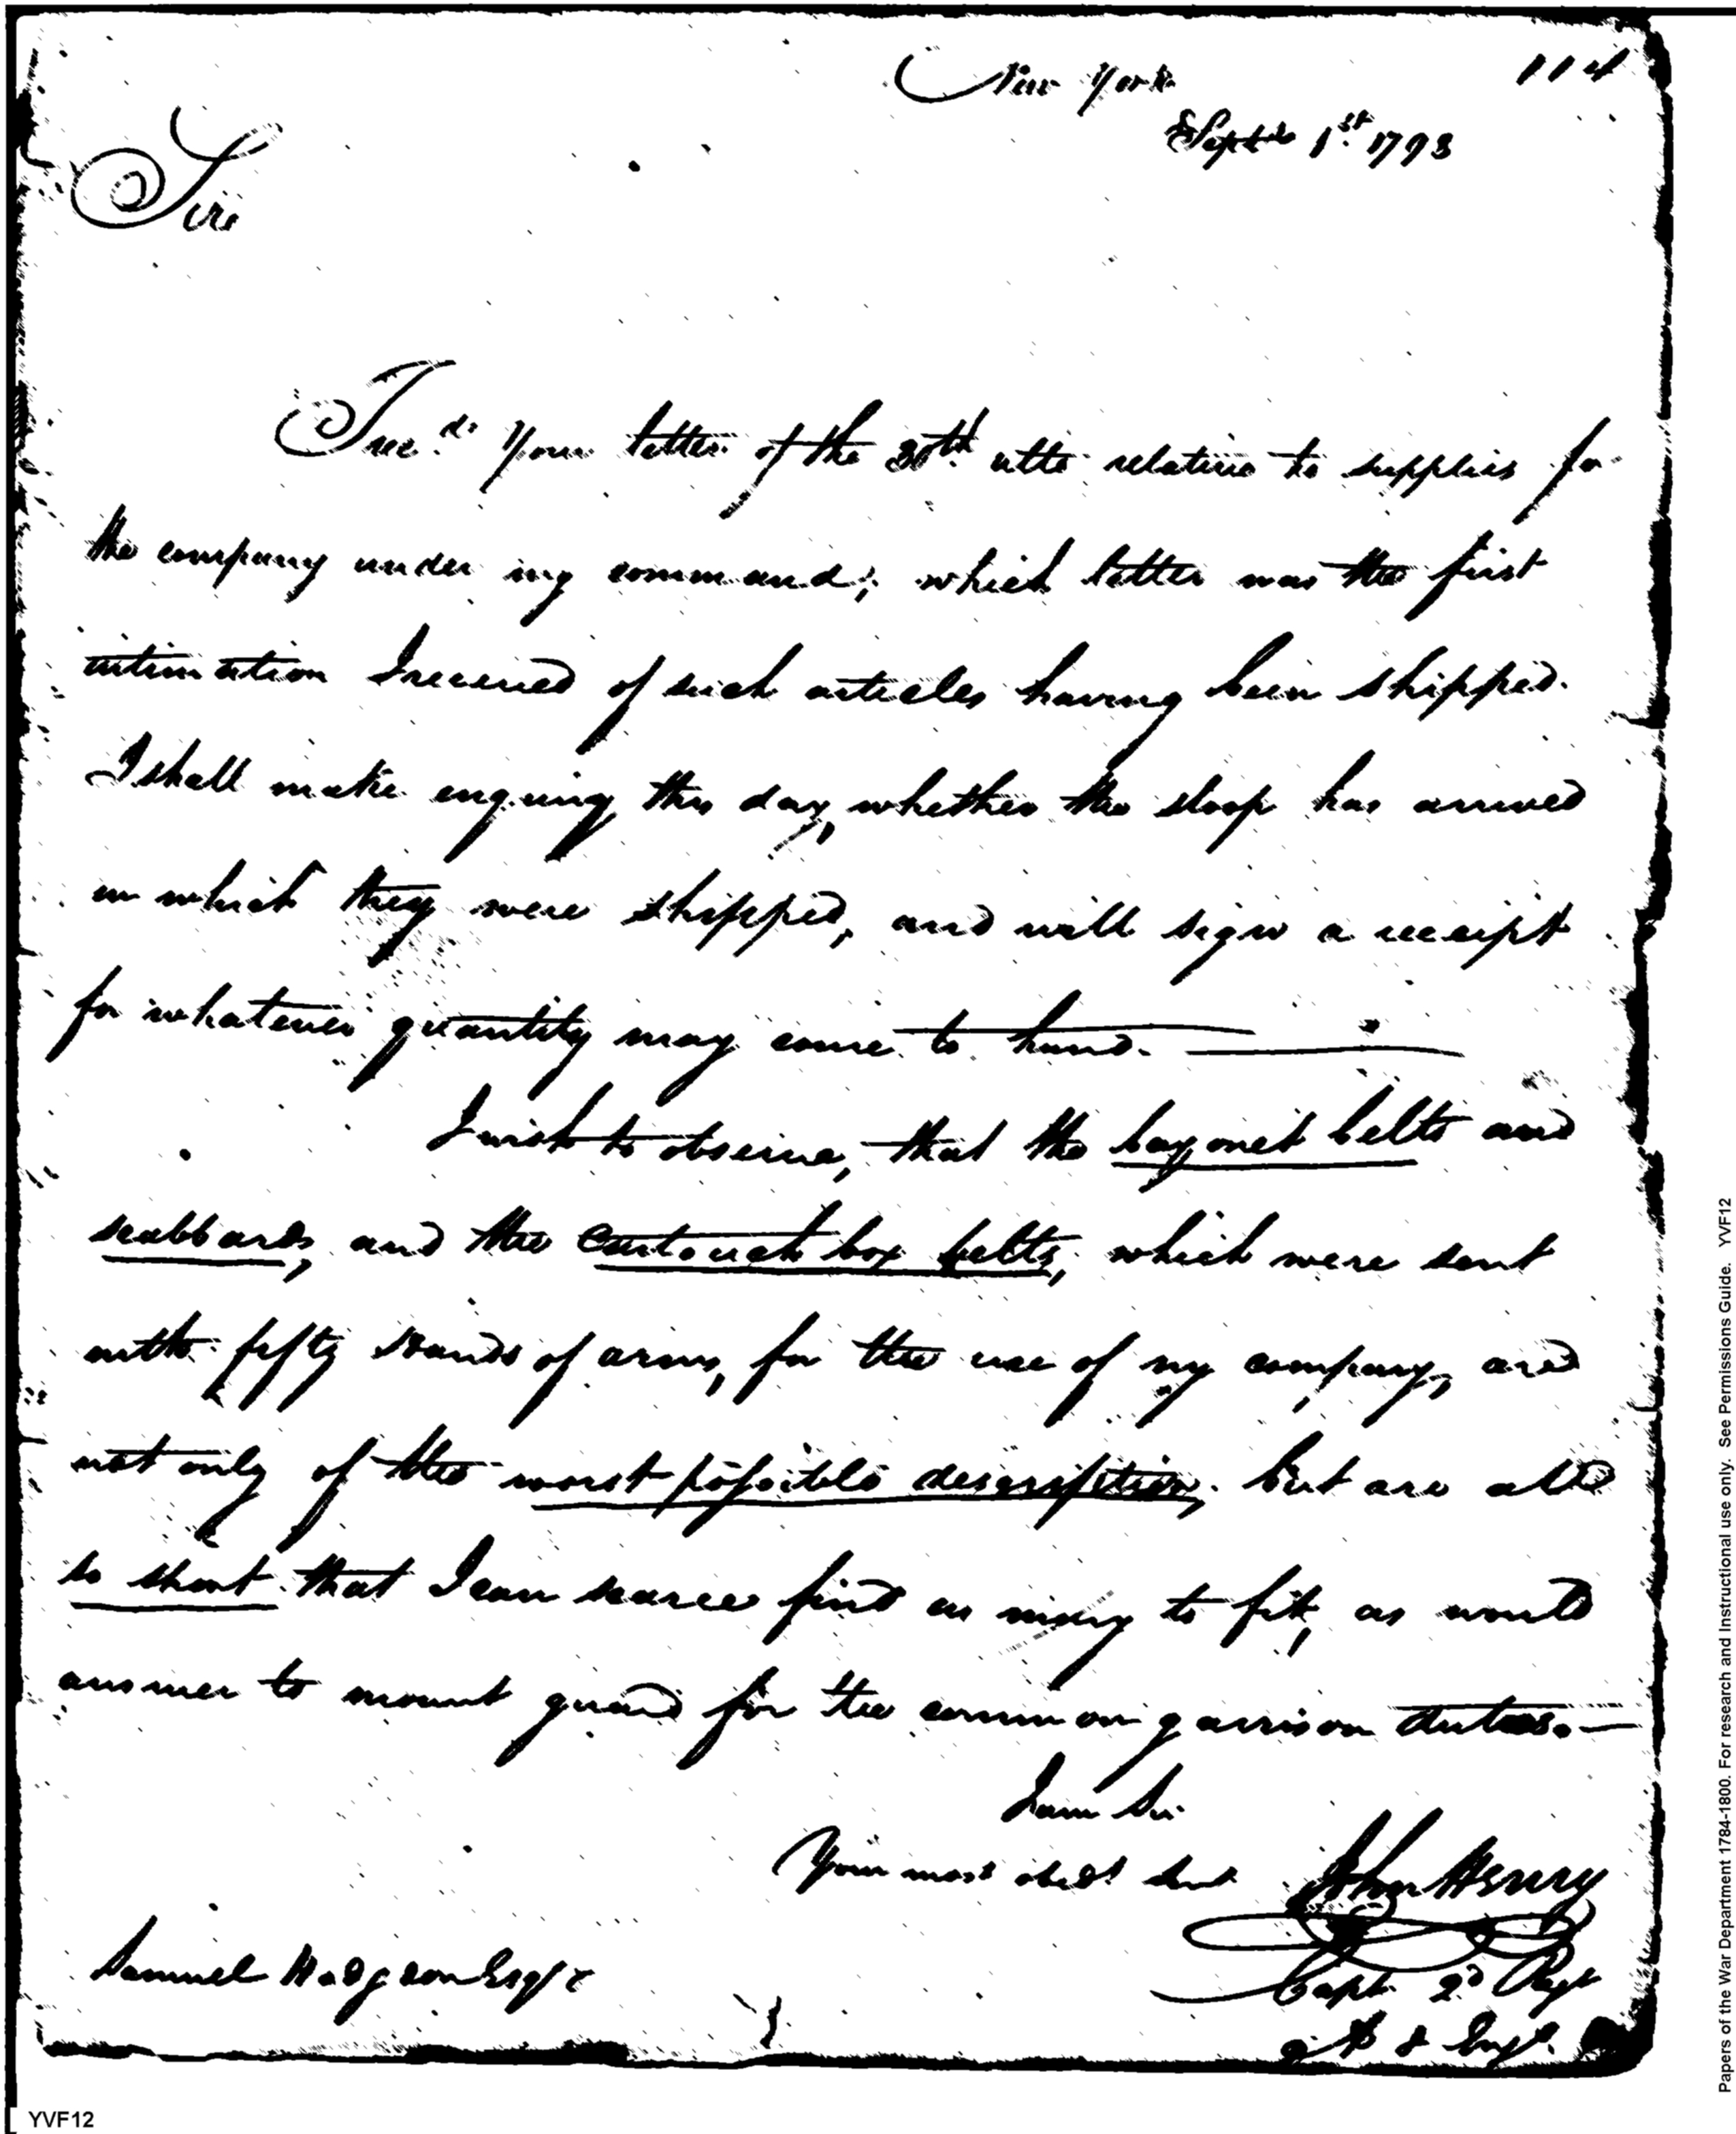 New York 114
Septbr 1st 1793
Sir
I recd. Your letter of the 30th ulto relative to supplies for
the company under my command; which letter was the first
intimation I received of such articles having been shipped.
I shall make enquiry this day, whether the sloop has arrived
in which they were shipped, and will sign a receipt
for whatever quantity may come to hand.
I wish to observe, that the bayonet belts and
scabbards, and the Cartouch box belts, which were sent
with fifty stands of arms, for the use of my company, are
not only of the worst possible description, but are all
so short that I can scarce find as many to fit, as would
answer to mount guard for the common garrison duties.—
I am Sir
Your most obedt Servt John Henry
Samuel Hodgdon Esqr
Capt. 2d Regt
A & Engr.
Papers of the War Department 1784-1800. For research and Instructional use only. See Permissions Guide. YVF12
YVF12